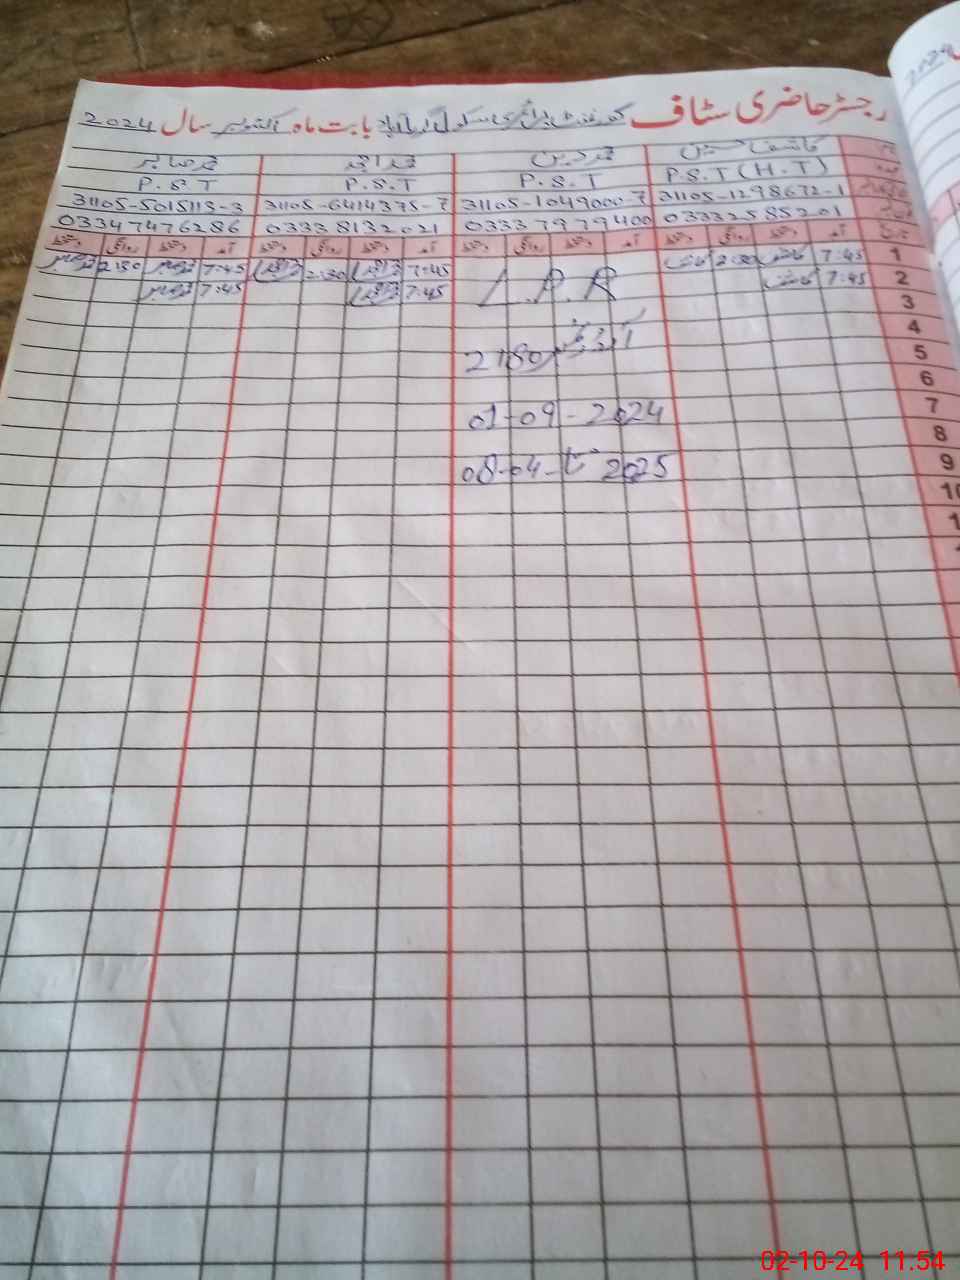 رجسٹر حاضری سٹاف گورنمنٹ پرائمری سکول بابت ماہ اکتوبر سال 2024
کاشف حسین محمد دین محمد امجد محمد صابر
P.S.T (H.T) P.S.T P.S.T P.S.T
31105-1298672-1 31105-1049000-7 31105-6414375-7 31105-5015113-3
03332585201 03337979400 03338132021 03347476286
آمد دستخط روانگی دستخط آمد دستخط روانگی دستخط آمد دستخط روانگی دستخط آمد دستخط روانگی دستخط
1 7:45 2:30 7:45 2:30 7:45 2:30
2 7:45 L.P.R 7:45 7:45
3
4
5 آرڈر نمبر 2180
6
7 01-09-2024
8
9 تا 08-04-2025
10
02-10-24 11.54